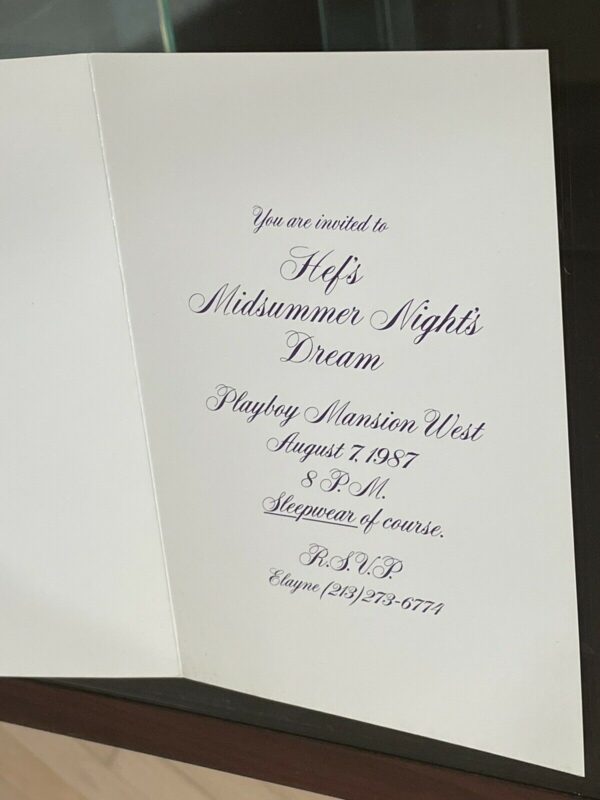 You are invited to
Hef's
Midsummer Night's
Dream
Playboy Mansion West
August 7, 1987
8 P.M.
Sleepwear of course.
R.S.V.P.
Elayne (213) 273-6774